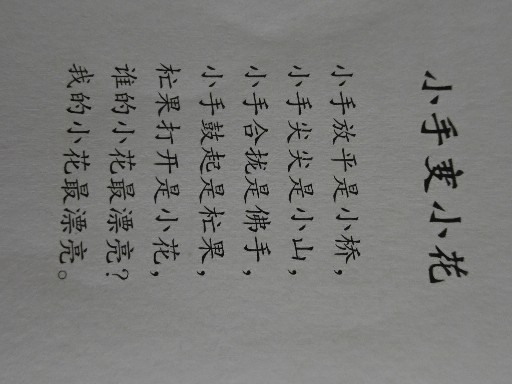 小手变小花
小手放平是小桥，
小手尖尖是小山，
小手合拢是佛手，
小手鼓起是杧果，
杧果打开是小花，
谁的小花最漂亮？
我的小花最漂亮。